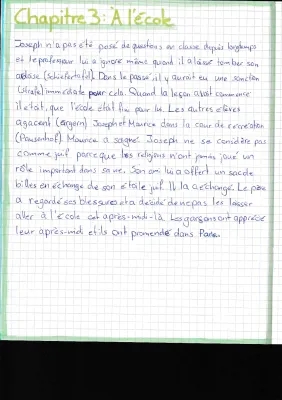 Chapitre 3: À l'école
Joseph n'a pas été posé de questions en classe depuis longtemps
et le professeur lui a ignoré même quand il a laissé tomber son
ardoise (Schiefertafel). Dans le passé il y aurait eu une sanction
(Strafe) immédiate pour cela. Quand la leçon avait commencé
il était, que l'école était fini pour lui. Les autres élèves
agacent (ärgern) Joseph et Maurice dans la cour de recréation
(Pausenhof). Maurice a saigné. Joseph ne se considère pas
comme juif parce que les religions n'ont jamais joué un
rôle important dans sa vie. Son ami lui a offert un sac de
billes en échange de son étoile juif. Il l'a échangé. Le père
a regardé ses blessures et a décidé de ne pas les laisser
aller à l'école cet après-midi-là. Les garçons ont apprécié
leur après-midi et ils ont promené dans Paris.